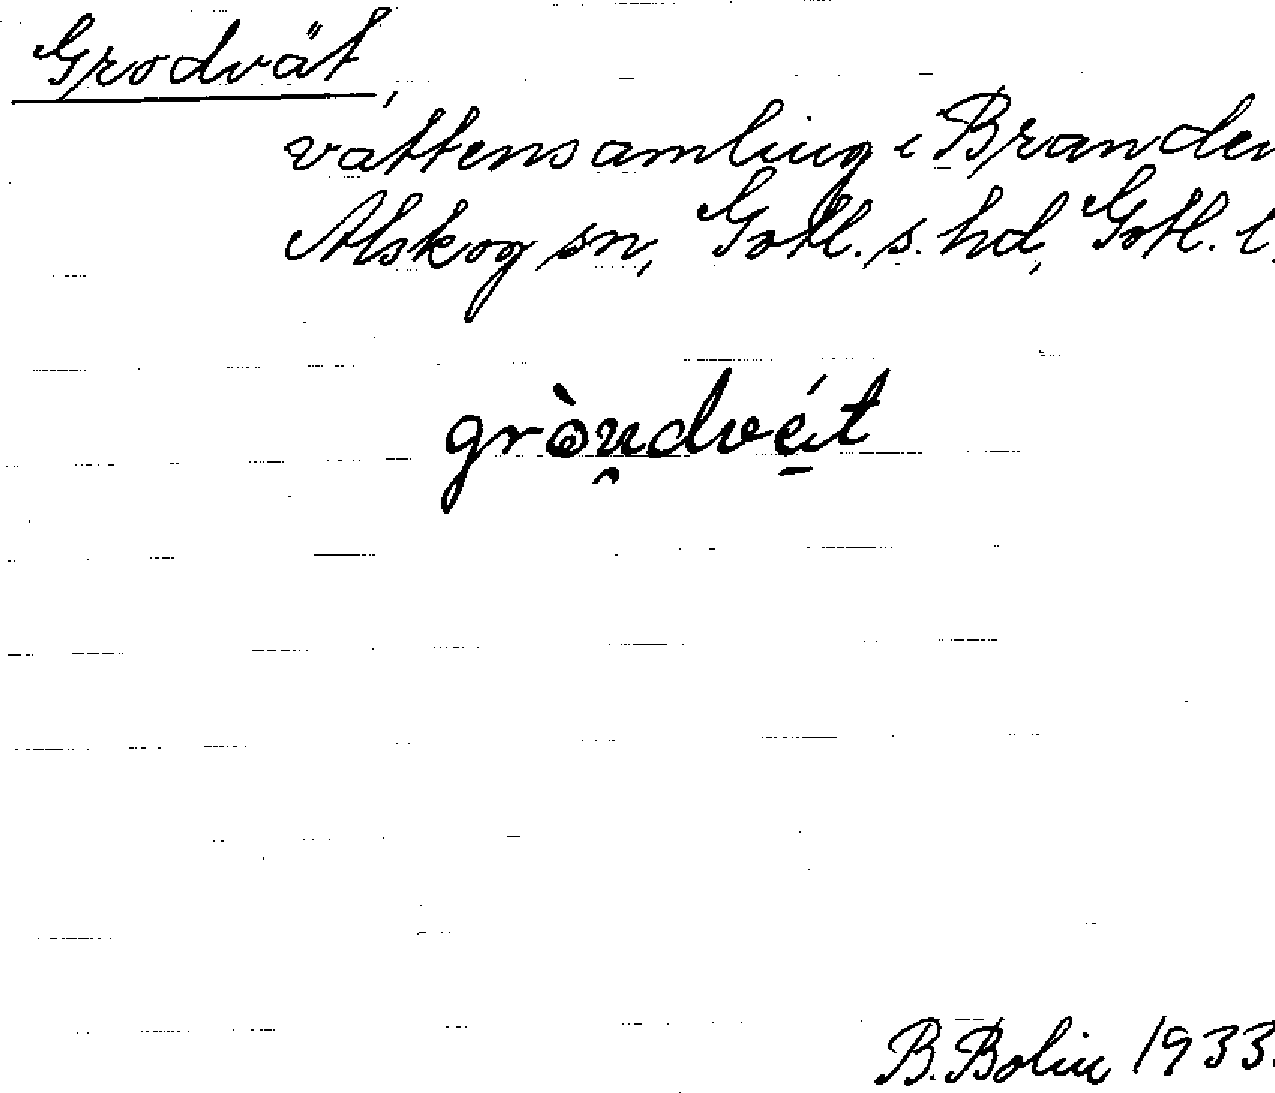 Grodvät,
vattensamling i Branden
Alskog sn, Gotl. s. hd, Gotl. l.
gròu̯dvé̱t
B. Bolin 1933.